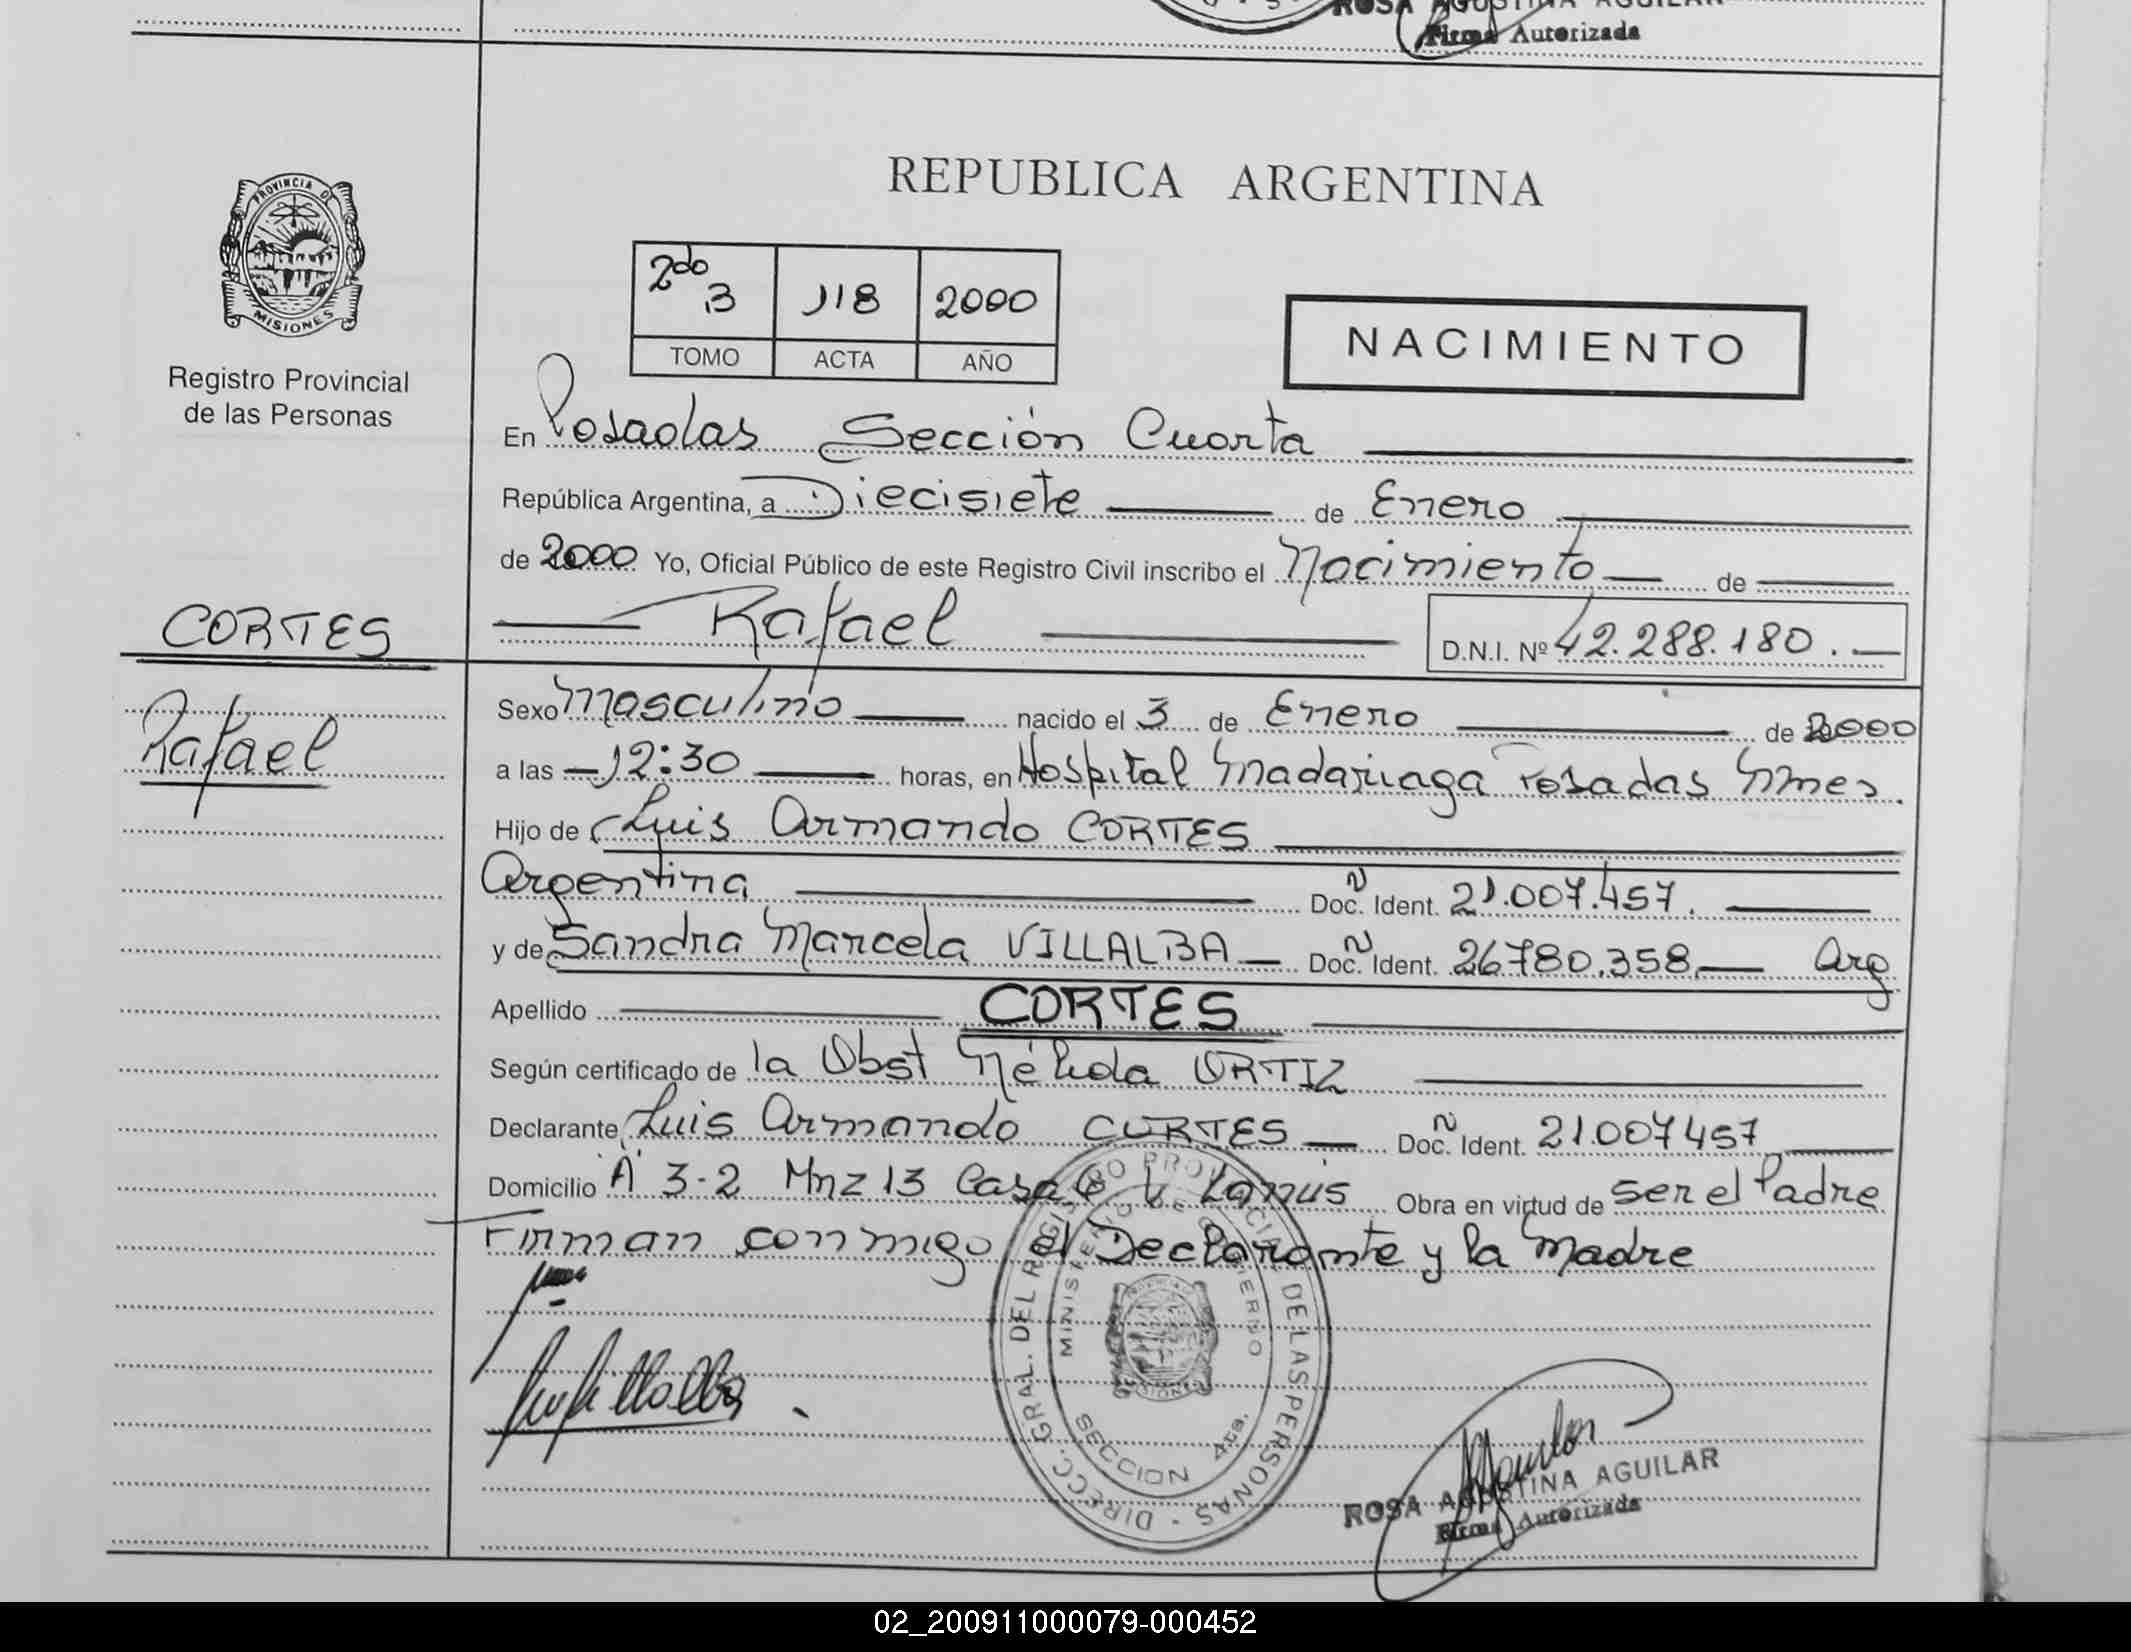 ROSA AGUSTINA AGUILAR
Firma Autorizada
PROVINCIA DE
MISIONES
Registro Provincial
de las Personas
REPUBLICA ARGENTINA
2do 3 118 2000
TOMO ACTA AÑO
NACIMIENTO
En Posadas Sección Cuarta
República Argentina, a Diecisiete de Enero
de 2000 Yo, Oficial Público de este Registro Civil inscribo el Nacimiento de
Rafael D.N.I. Nº 42.288.180.
CORTES
Rafael
Sexo Masculino nacido el 3 de Enero de 2000
a las 12:30 horas, en Hospital Madariaga Posadas Mnes.
Hijo de Luis Armando CORTES
Argentina Doc. Ident. 21.007.457.
y de Sandra Marcela VILLALBA Doc. Ident. 26780.358 Arg
Apellido CORTES
Según certificado de la Obst Nélida ORTIZ
Declarante Luis Armando CORTES Doc. Ident. 21.007457
Domicilio A 3-2 Mnz 13 Casa Lanús Obra en virtud de ser el Padre
Firman conmigo el Declarante y la Madre
DIRECC. GRAL. DEL REGISTRO PROVINCIAL DE LAS PERSONAS
MINISTERIO DE GOBIERNO
MISIONES
SECCION 4ta.
ROSA AGUSTINA AGUILAR
Firma Autorizada
02_200911000079-000452